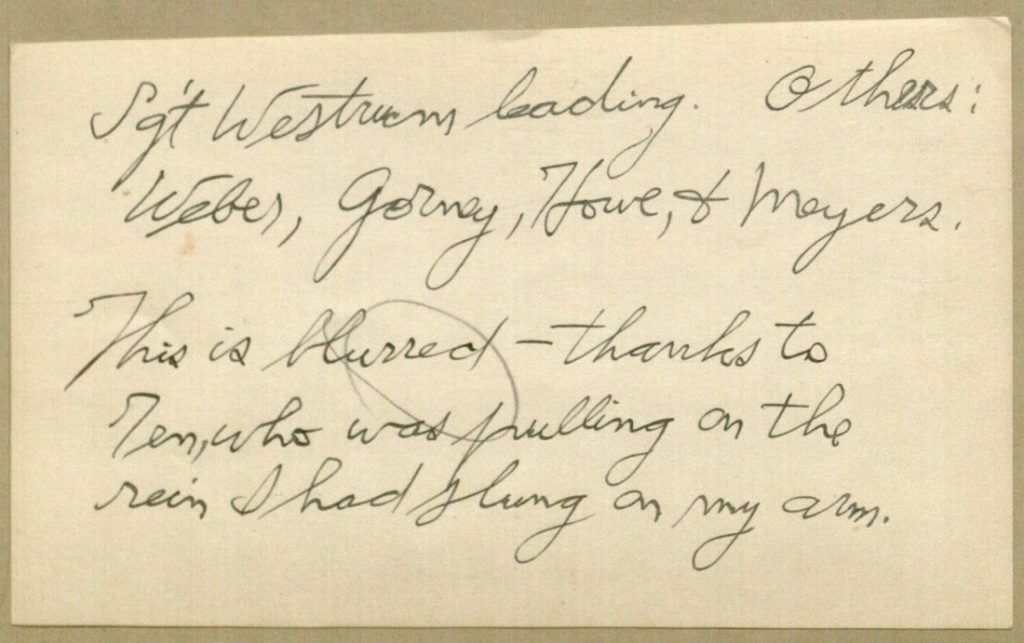 Sgt Westrum leading. Others:
Weber, Gorney, Howe, & Meyers.
This is blurred – thanks to
Ten, who was pulling on the
rein I had slung on my arm.